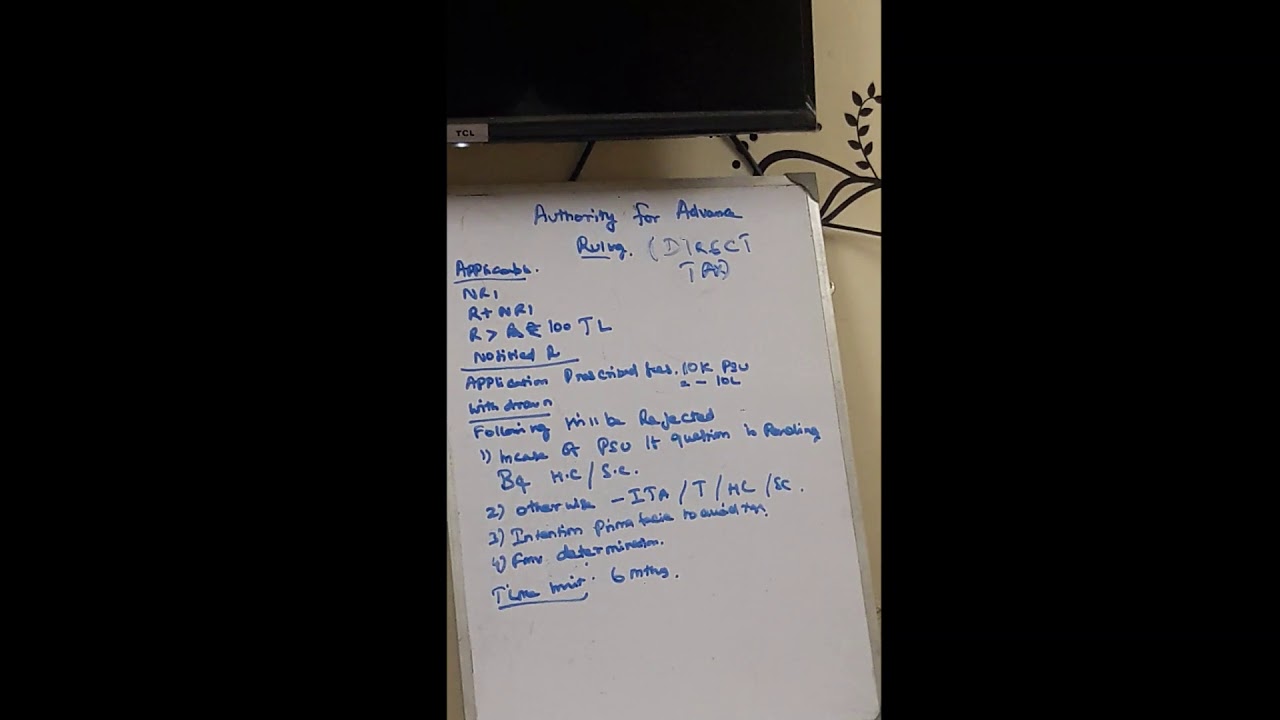 TCL
Authority for Advance
Ruling. (DIRECT
TAX)
Applicable.
NRI
R + NRI
R > Rs ₹ 100 TL
Notified R
Application Prescribed fees. 10K PSU
2 - 10L
With drawn
Following will be Rejected
1) Incase of PSU If question is Pending
B4 H.C / S.C.
2) Otherwise - ITA / T / HC / SC.
3) Intention Prima facie to avoid tax.
4) FMV determination.
Time limit: 6 mths.